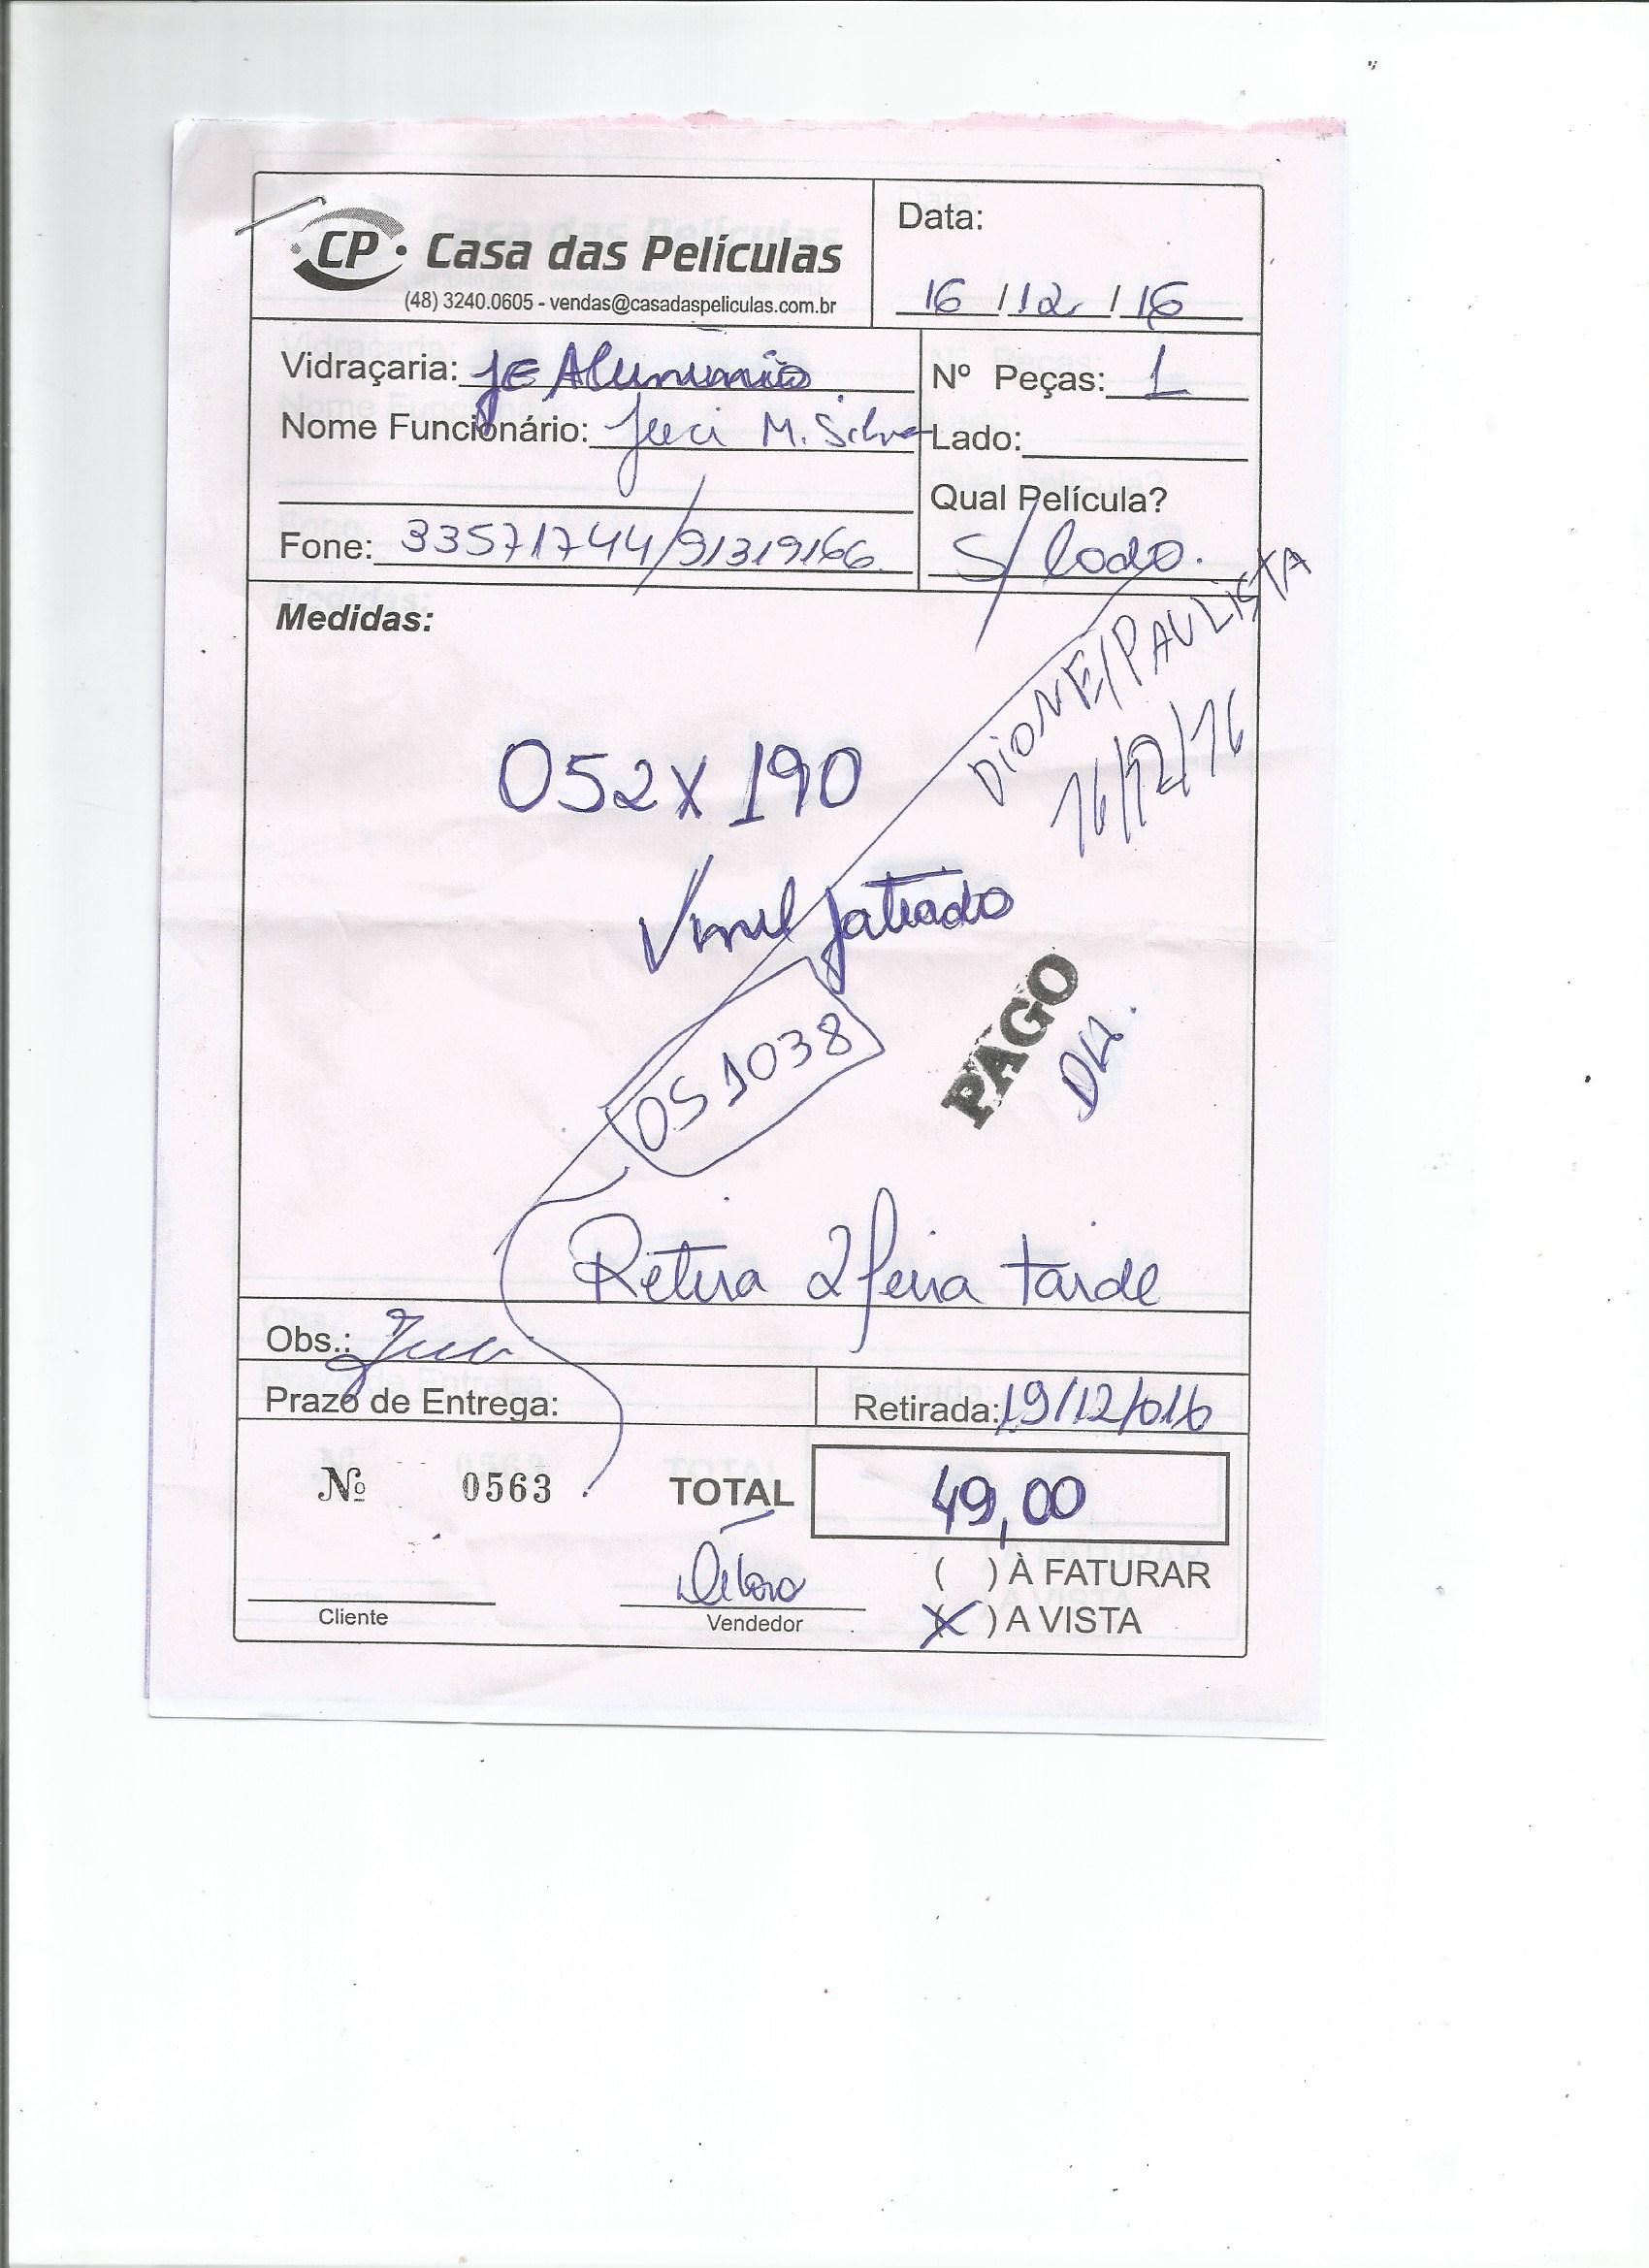 CP Casa das Películas
(48) 3240.0605 - vendas@casadaspeliculas.com.br
Data:
16 / 12 / 16
Vidraçaria: JE Aluminio
Nº Peças: 1
Nome Funcionário: Juci M. Silva
Lado:
Qual Película?
S/ lado.
Fone: 33571744/91319166
Medidas:
DIONE/PAULISTA
16/12/16
052 X 190
Vinil Jateado
OS 1038
PAGO
DH.
Retira 2 feira tarde
Obs.: Juci
Prazo de Entrega:
Retirada: 19/12/016
Nº 0563
TOTAL 49,00
( ) À FATURAR
(X) A VISTA
Débora
Cliente
Vendedor